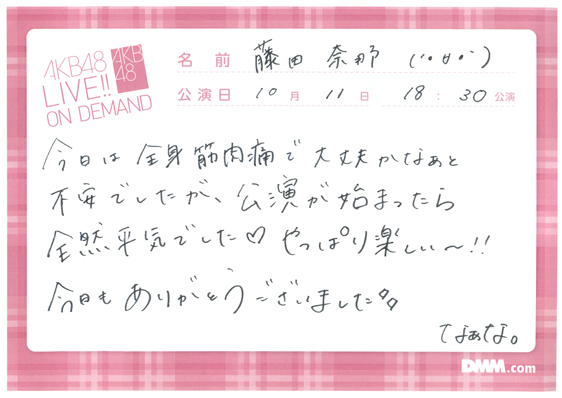 AKB48
LIVE!!
ON DEMAND
AKB
48
名前 藤田 奈那 (''•'ㅂ'•')
公演日 10月 11日 18:30公演
今日は全身筋肉痛で大丈夫かなぁと
不安でしたが、公演が始まったら
全然平気でした♡ やっぱり楽しい〜!!
今日もありがとうございました
なぁな。
DMM.com